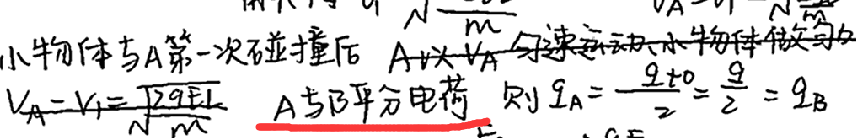 小物体与A第一次碰撞后 A以V_A匀速运动、小物体做匀
V_A=V_1=√(2qEL)/√m A与B平分电荷 则 q_A=(q+0)/2=q/2=q_B